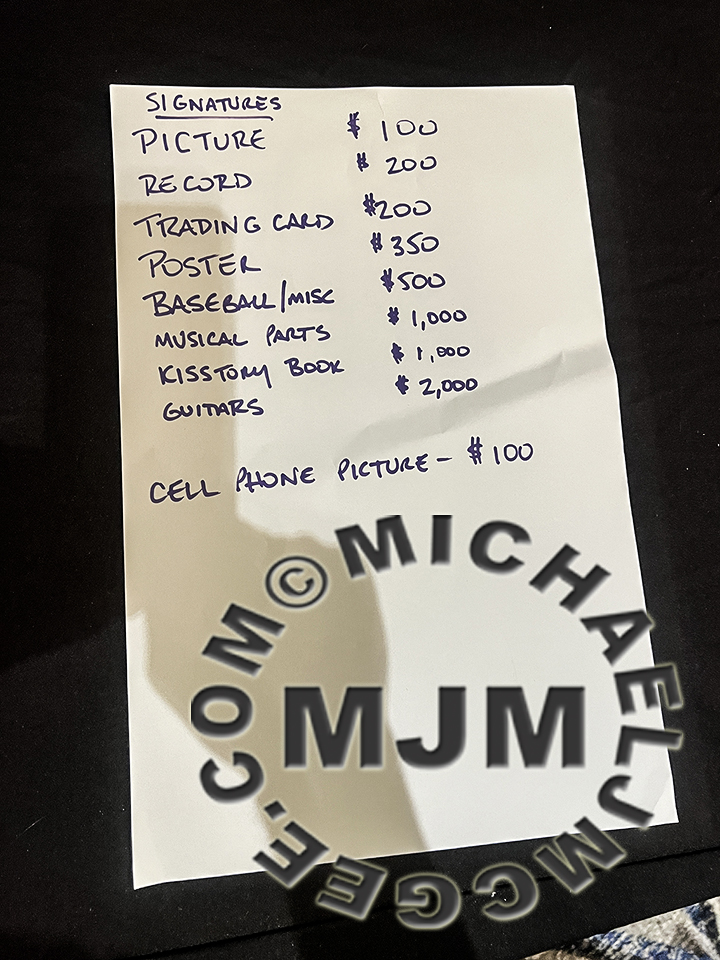 SIGNATURES
PICTURE $ 100
RECORD $ 200
TRADING CARD $200
POSTER $350
BASEBALL/MISC $500
MUSICAL PARTS $ 1,000
KISSTORY BOOK $ 1,000
GUITARS $ 2,000
CELL PHONE PICTURE - $100
© MICHAELJMCGEE.COM
MJM